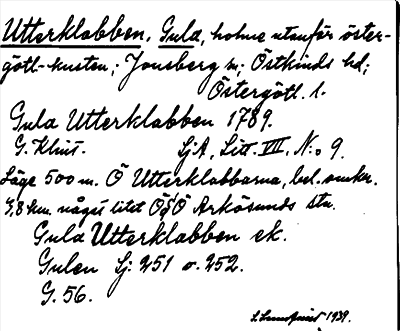 Utterklabben, Gula, holme utanför öster-
götl.-kusten; Jonsberg sn; Östkinds hd;
Östergötl. l.
Gula Utterklabben 1789.
G. Klint. SjA, Litt. VII. N:o 9.
Läge 500 m. Ö Utterklabbarna, bel. omkr.
3,8 km. något litet ÖSÖ Arkösunds stn.
Gula Utterklabben ek.
Gulen Lj: 251 o. 252.
G. 56.
1939.